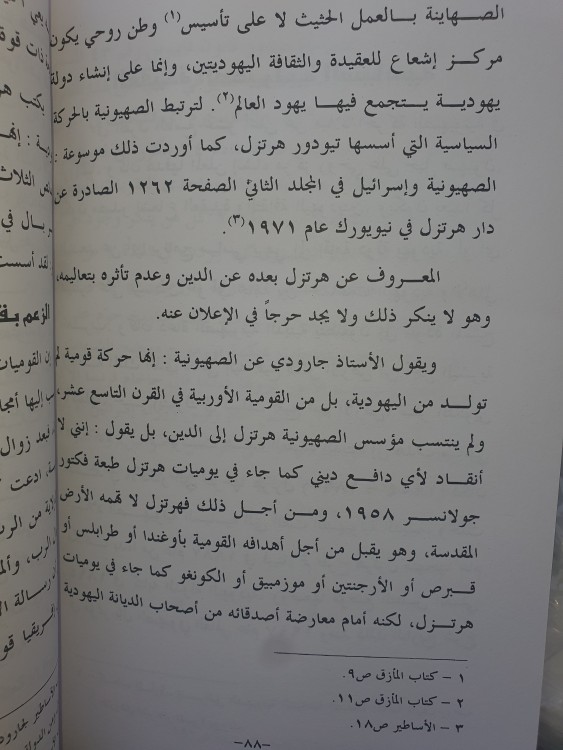 الصـهاينة بـالعمل الحثيث لا على تأسيس(١) وطن روحي يكون
مركـز إشعاع للعقيدة والثقافة اليهوديتين، وإنما على إنشاء دولة
يهودية يـتجمع فيهـا يهود العالم(٢). لترتبط الصهيونية بالحركة
السياسية التي أسسها تيودور هرتزل، كما أوردت ذلك موسوعة :
الصهيونية وإسرائيل في المجلد الثاني الصفحة ١٢٦٢ الصادرة عن
دار هرتزل في نيويورك عام ١٩٧١(٣).
المعـروف عن هرتزل بعده عن الدين وعدم تأثره بتعاليمه،
وهو لا ينكر ذلك ولا يجد حرجاً في الإعلان عنه.
ويقول الأستاذ جارودي عن الصهيونية : إنها حركة قومية لم
تولـد من اليهودية، بل من القومية الأوربية في القرن التاسع عشر،
ولم ينتسب مؤسس الصهيونية هرتزل إلى الدين، بل يقول : إنني لا
أنقـاد لأي دافـع ديني كما جاء في يوميات هرتزل طبعة فكتور
جولانسـر ١٩٥٨، ومـن أجـل ذلك فهرتزل لا تهمه الأرض
المقدسة، وهو يقبل من أجل أهدافه القومية بأوغندا أو طرابلس أو
قـبرص أو الأرجنتين أو موزمبيق أو الكونغو كما جاء في يوميات
هرتـزل، لكنه أمام معارضة أصدقائه من أصحاب الديانة اليهودية
١ – كتاب المأزق ص٩.
٢ – كتاب المأزق ص١١.
٣ – الأساطير ص١٨.
–٨٨–